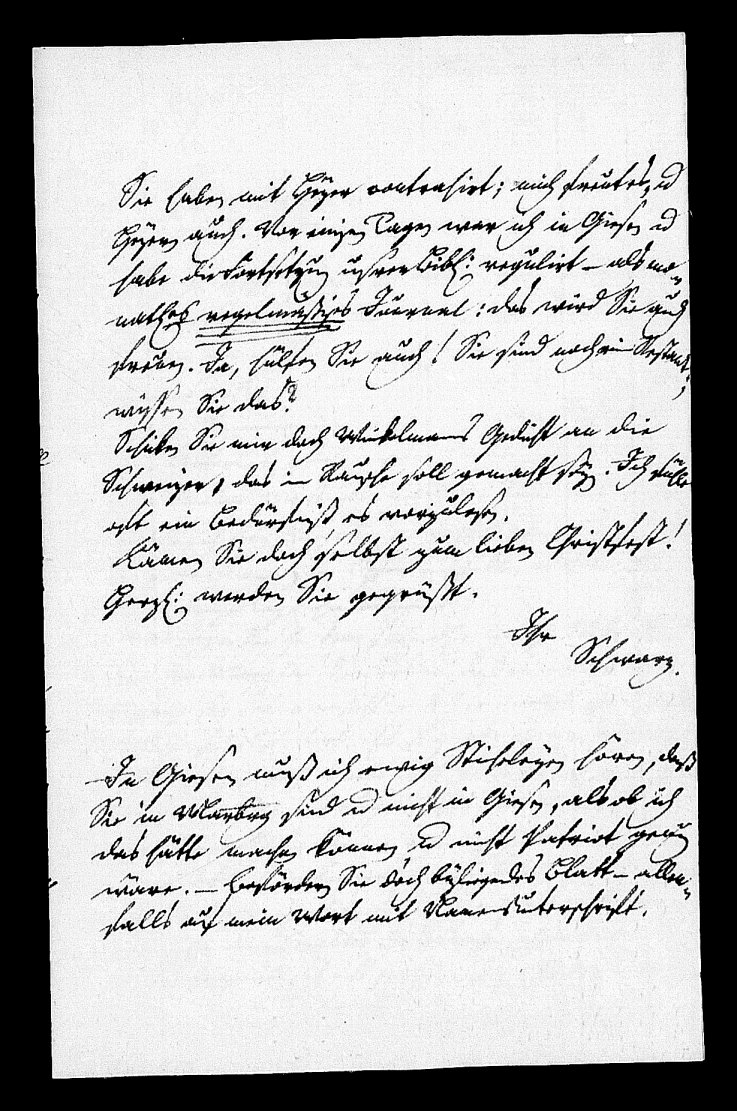 Sie haben mit Heyer contrahirt; mich freut es, u
Heyern auch. Vor einigen Tagen war ich in Giesen u
habe die Fortsetzung unsrer Bibl: regulirt – als mo-
nathes regelmäsiges Journal: das wird Sie auch
freuen. Ja, hülfen Sie auch! Sie sind noch im Restant;
wissen Sie das?
Schicken Sie mir doch Winkelmanns Gedicht an die
Schweizer, das im Rausche soll gemacht seyn. Ich fühle
oft ein Bedürfniß es vorzulesen.
Kämen Sie doch selbst zum lieben Christfest!
Herzl: werden Sie gegrüßt.
Ihr
Schwarz.
In Giesen muß ich ewig Sticheleyen hören, daß
Sie in Marburg sind u nicht in Giesen, als ob ich
das hätte machen können u nicht Patriot genug
wäre. – Befördern Sie doch byliegendes Blatt – allen-
falls auf mein Wort mit Namensunterschrift.